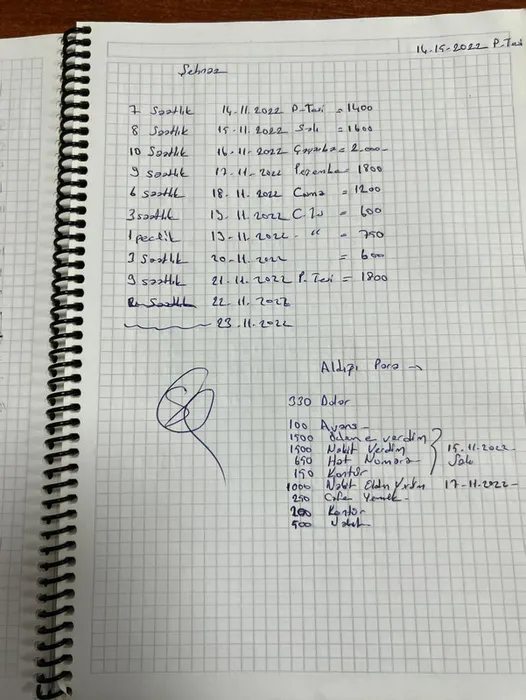 14.15-2022 P.Tesi
Şehnaz
7 Saatlik 14.11.2022 P-Tesi = 1400
8 Saatlik 15-11.2022 Salı = 1600
10 Saatlik 16-11-2022 Çarşamba = 2.000-
9 saatlik 17-11-2022 Perşembe = 1800
6 saatlik 18.11.2022 Cuma = 1200
3 saatlik 19.11.2022 C.Ts = 600
1 19-11-2022 - " = 750
3 Saatlik 20-11.2022 = 600
9 saatlik 21.11.2022 P.Tesi = 1800
Saatlik 22.11.2022
23.11.2022
Aldığı Para →
330 Dolar
100 Avans-
1500 ödeme verdim
1500 Nakit Verdim 15.11.2022
650 Hat Numara Salı
150 Kontür
1000 Nakit Elden 17-11-2022-
250 Cafe Yemek-
200 Kontür
500 Nakit-